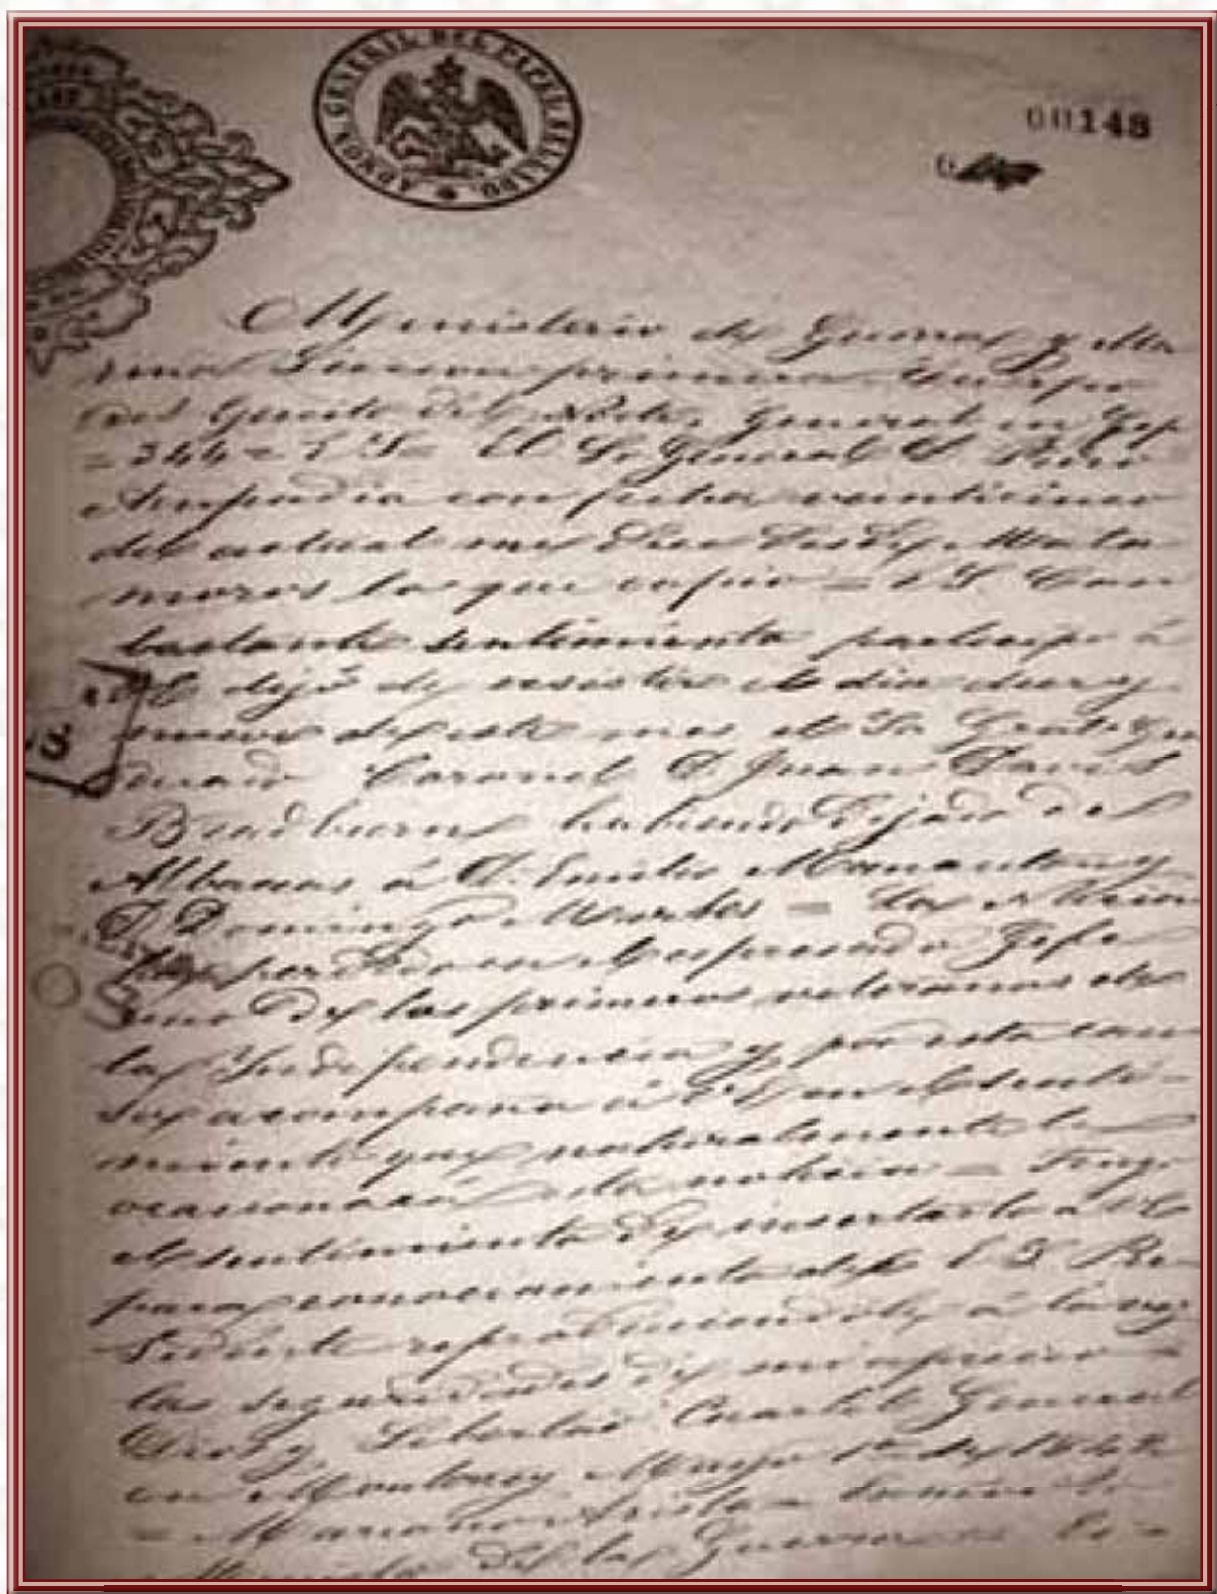 ADMON. GENERAL DEL PAPEL SELLADO.
00148
Ministerio de Guerra y Ma
rina Seccion primera
del Ejercito del Norte. General en Jefe
= 344 = E S = El Sr General D. Pedro
Ampudia con fecha veinticinco
del actual me dice desde Mata
moros lo que copio = E S. Con
bastante sentimiento participo á
VE dejó de existir el dia diez y
nueve de este mes el Sr Gradu
ado Coronel D. Juan Davis
Bradburn habiendo dejado de
Albaceas á D. Emilio y
D. Domingo = La Nacion
ha perdido en el espresado Jefe
uno de los primeros veteranos de
la Independencia y por esta cau
sa acompaño á VE en el senti-
miento que naturalmente le
ocasionará esta noticia = Tengo
el sentimiento de insertarlo a VE
para conocimiento del E S Pre
sidente reproduciendole á la vez
las seguridades de mi aprecio =
Dios y Libertad Cuartel General
en Monterey Mayo 1º de 1842
= Mariano Arista =
Ministro de la Guerra